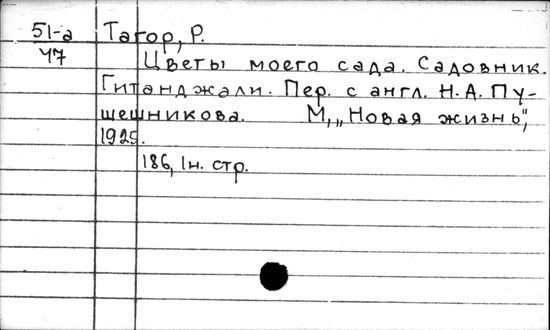 51-а
47
Тагор, Р.
Цветы моего сада. Садовник.
Гитанджали. Пер. с англ. Н.А. Пу-
шешникова. М, „Новая жизнь",
1925.
186, 1н. стр.